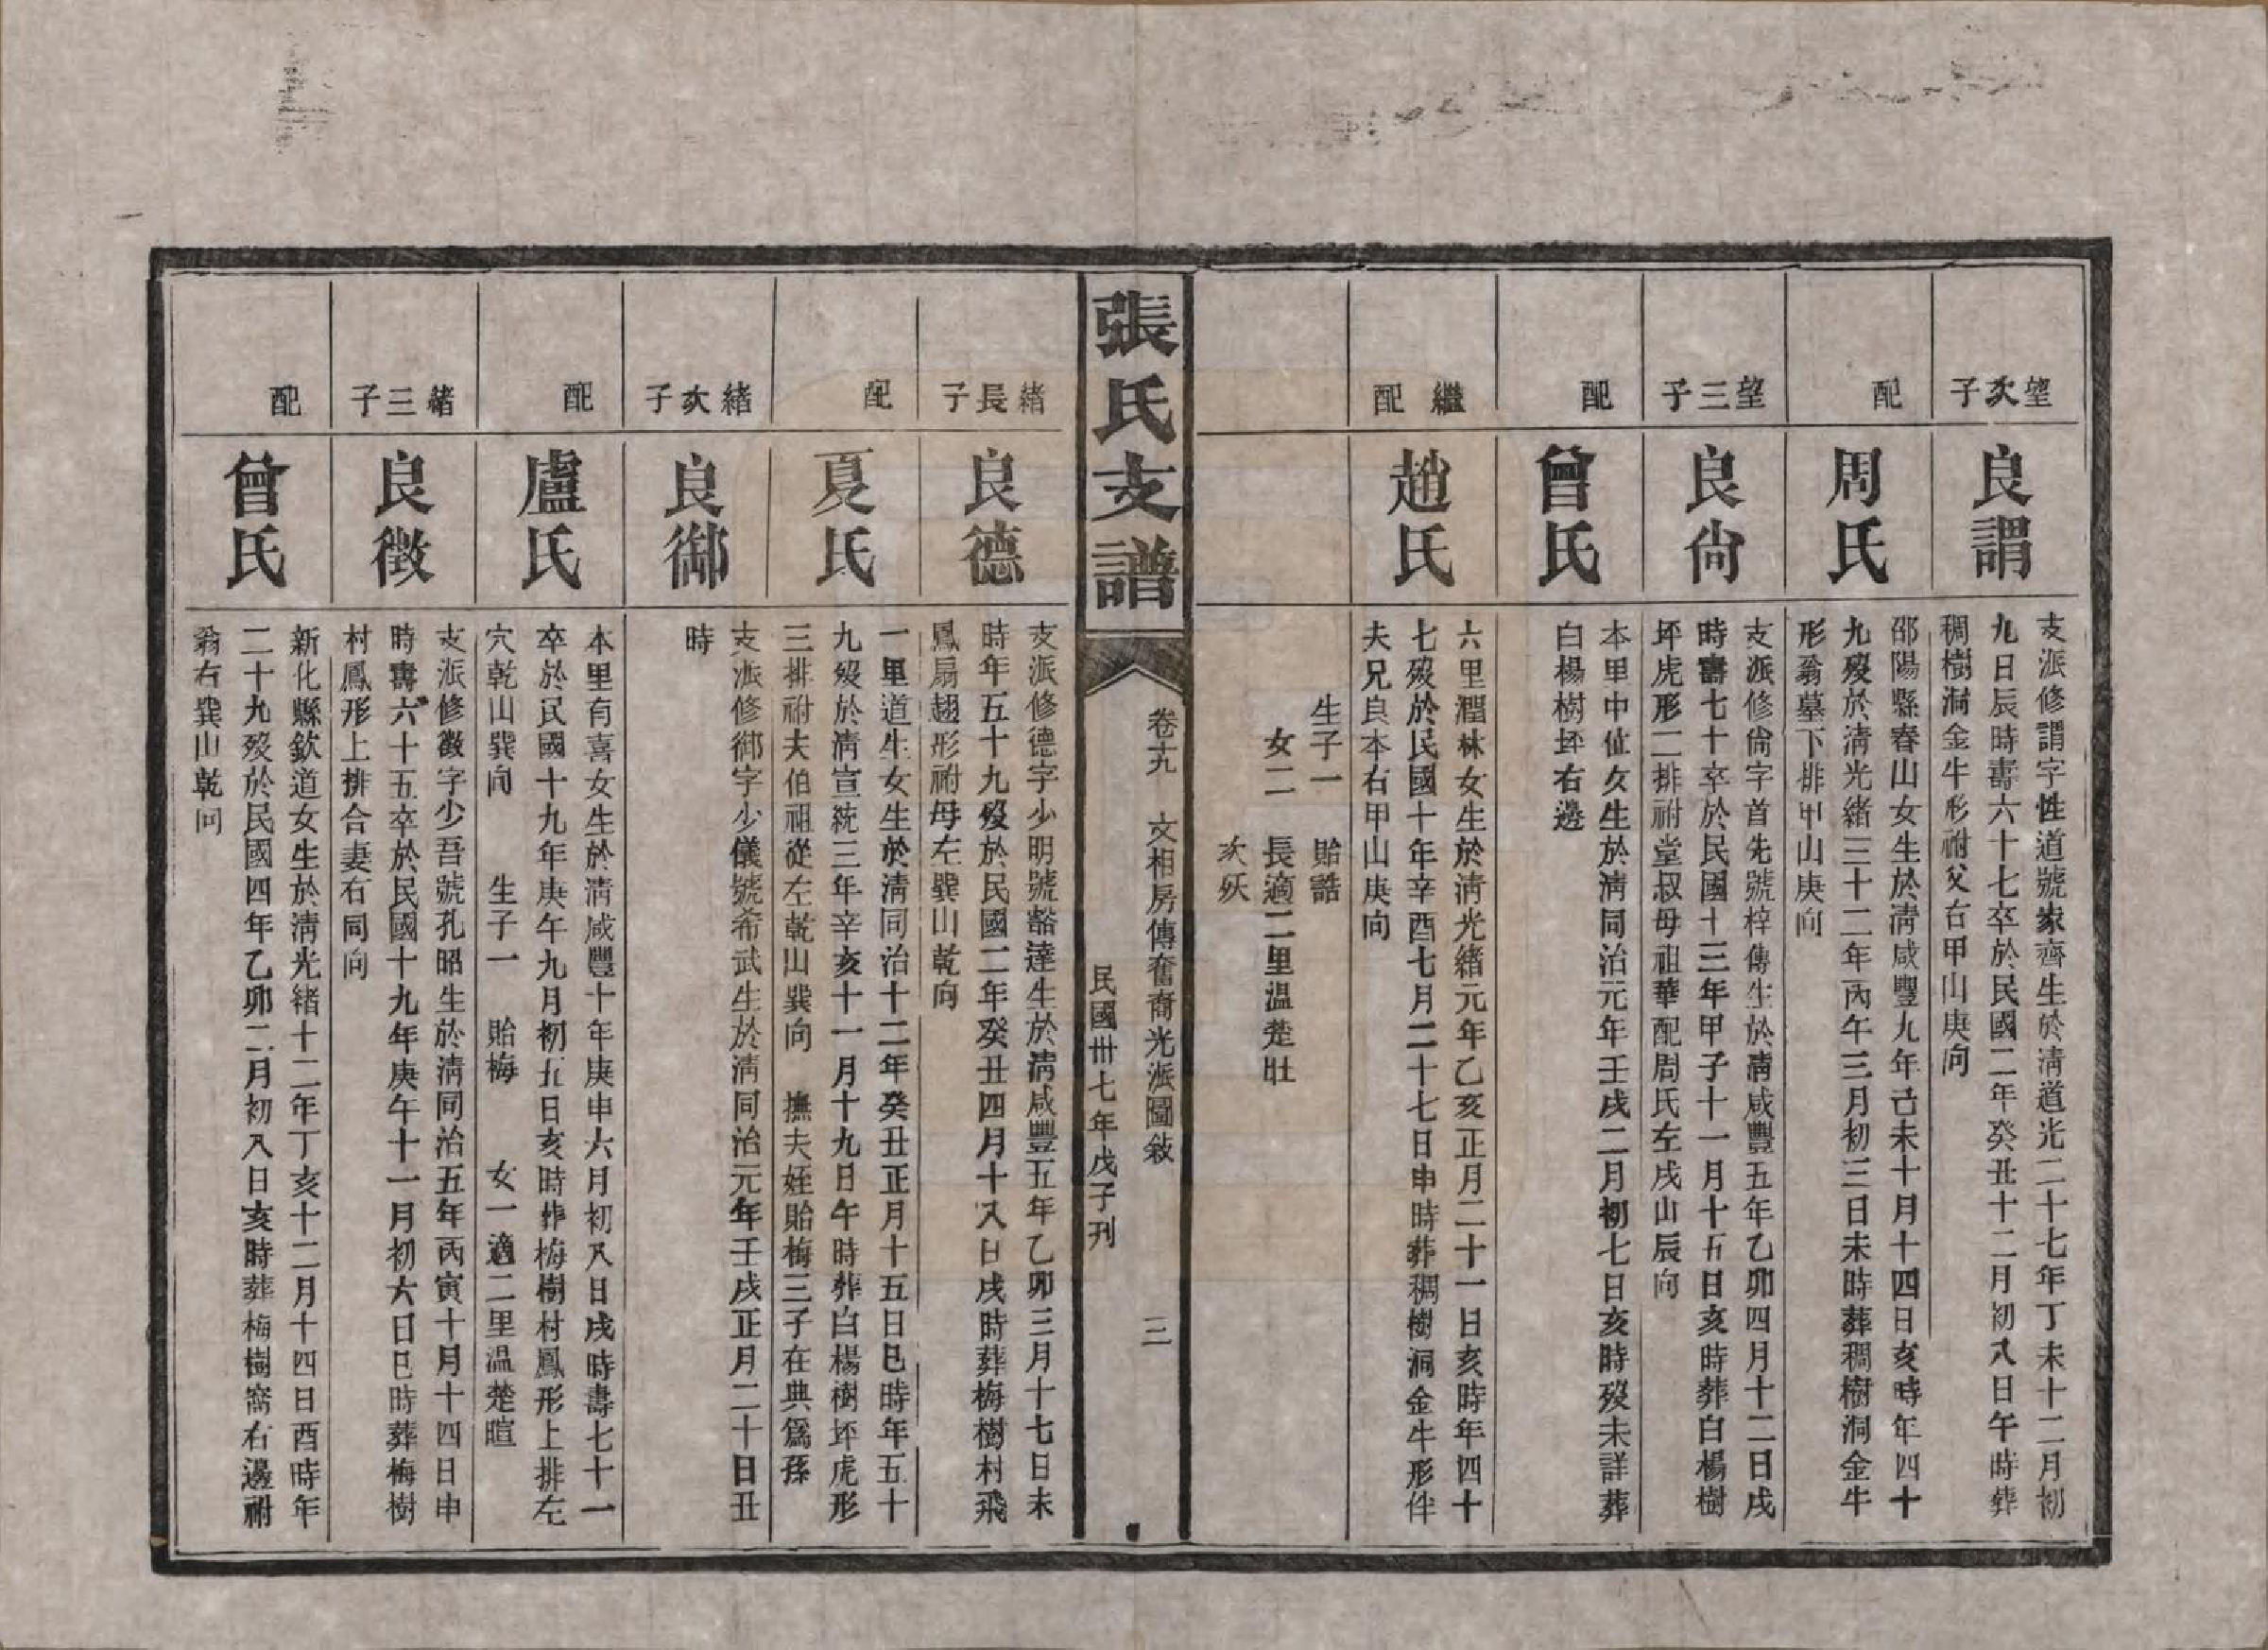 望次子
良謂
支派修謂字性道號家齊生於清道光二十七年丁未十二月初
九日辰時壽六十七卒於民國二年癸丑十二月初八日午時葬
稠樹洞金牛形祔父右甲山庚向
配
周氏
邵陽縣春山女生於清咸豐九年己未十月十四日亥時年四十
九歿於清光緒三十二年丙午三月初三日未時葬稠樹洞金牛
形翁墓下排甲山庚向
望三子
良尙
支派修尙字首先號梓傳生於清咸豐五年乙卯四月十二日戌
時壽七十卒於民國十三年甲子十一月十五日亥時葬白楊樹
坪虎形二排祔堂叔母祖華配周氏左戌山辰向
配
曾氏
本里中位女生於清同治元年壬戌二月初七日亥時歿未詳葬
白楊樹坪右邊
繼配
趙氏
六里潤林女生於清光緒元年乙亥正月二十一日亥時年四十
七歿於民國十年辛酉七月二十七日申時葬稠樹洞金牛形伴
夫兄良本右甲山庚向
生子一 貽誥
女二 長適二里温楚壯
次殀
張氏支譜
卷十九 文相房傳奮裔光派圖敍 三
民國卅七年戊子刊
緒長子
良德
支派修德字少明號豁達生於清咸豐五年乙卯三月十七日未
時年五十九歿於民國二年癸丑四月十八日戌時葬梅樹村飛
鳳扇翅形祔母左巽山乾向
配
夏氏
一里道生女生於清同治十二年癸丑正月十五日巳時年五十
九歿於清宣統三年辛亥十一月十九日午時葬白楊樹坪虎形
三排祔夫伯祖從左乾山巽向 撫夫姪貽梅三子在典爲孫
緒次子
良御
支派修御字少儀號希武生於清同治元年壬戌正月二十日丑
時
配
盧氏
本里有喜女生於清咸豐十年庚申六月初八日戌時壽七十一
卒於民國十九年庚午九月初五日亥時葬梅樹村鳳形上排左
穴乾山巽向 生子一 貽梅 女一適二里温楚暄
緒三子
良徵
支派修徵字少吾號孔昭生於清同治五年丙寅十月十四日申
時壽六十五卒於民國十九年庚午十一月初六日巳時葬梅樹
村鳳形上排合妻右同向
配
曾氏
新化縣欽道女生於清光緒十二年丁亥十二月十四日酉時年
二十九歿於民國四年乙卯二月初八日亥時葬梅樹窩右邊祔
翁右巽山乾向